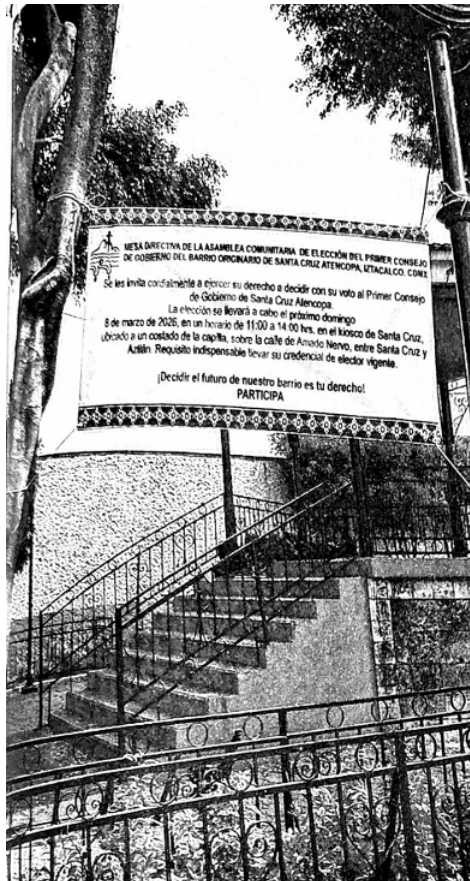 MESA DIRECTIVA DE LA ASAMBLEA COMUNITARIA DE ELECCIÓN DEL PRIMER CONSEJO
DE GOBIERNO DEL BARRIO ORIGINARIO DE SANTA CRUZ ATENCOPA, IZTACALCO. CDMX
Se les invita cordialmente a ejercer su derecho a decidir con su voto al Primer Consejo
de Gobierno de Santa Cruz Atencopa.
La elección se llevará a cabo el próximo domingo
8 de marzo de 2026, en un horario de 11:00 a 14:00 hrs. en el kiosco de Santa Cruz,
ubicado a un costado de la capilla, sobre la calle de Amado Nervo, entre Santa Cruz y
Aztlán. Requisito indispensable llevar su credencial de elector vigente.
¡Decidir el futuro de nuestro barrio es tu derecho!
PARTICIPA